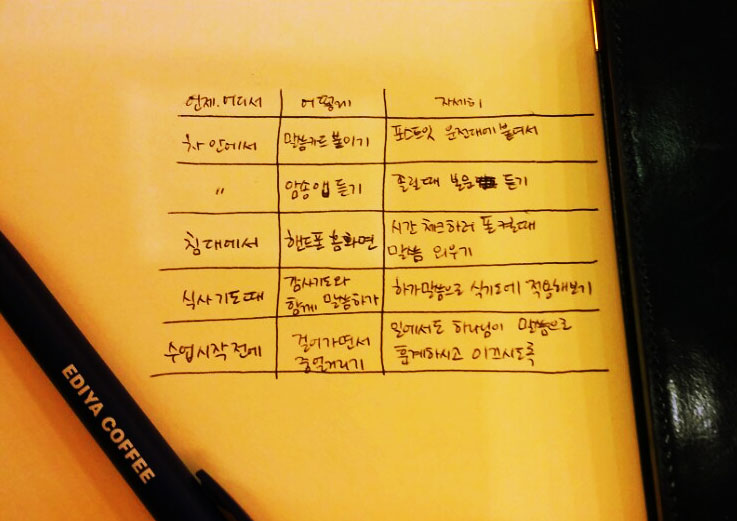 언제.어디서 어떻게 자세히
차 안에서 말씀카드 붙이기 포스트잇 운전대에 붙여서
〃 암송앱 듣기 졸릴때 듣기
침대에서 핸드폰 홈화면 시간 체크하려 폰 켤때
말씀 외우기
식사기도때 감사기도와
함께 말씀하가 하가말씀으로 식기도에 적용해보기
수업시작전에 걸어가면서
중얼거리기 일에서도 하나님이 말씀으로
훈계하시고 이끄시도록
EDIYA COFFEE